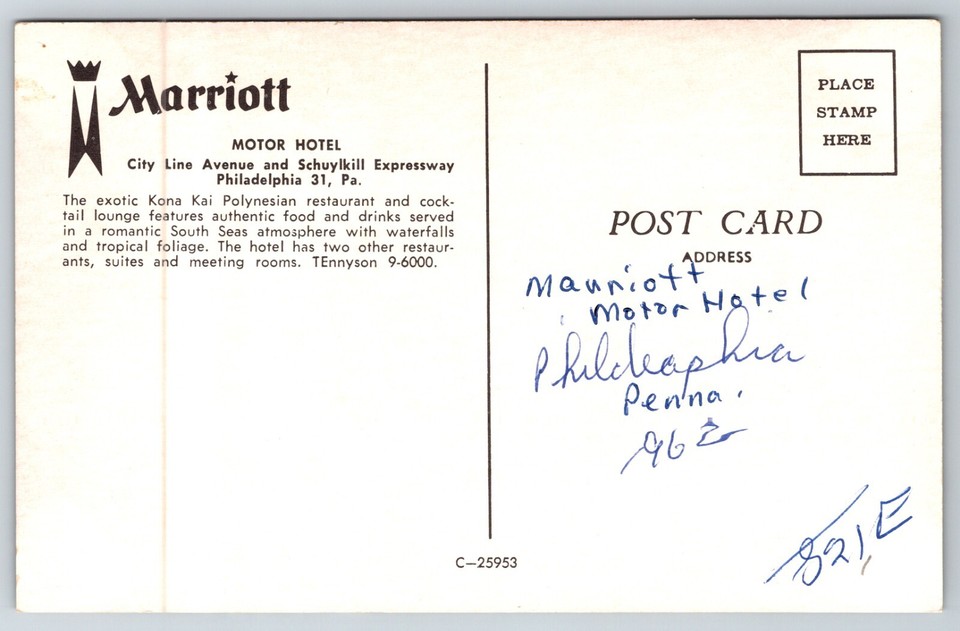 Marriott
MOTOR HOTEL
City Line Avenue and Schuylkill Expressway
Philadelphia 31, Pa.
The exotic Kona Kai Polynesian restaurant and cock-
tail lounge features authentic food and drinks served
in a romantic South Seas atmosphere with waterfalls
and tropical foliage. The hotel has two other restaur-
ants, suites and meeting rooms. TEnnyson 9-6000.
C—25953
PLACE
STAMP
HERE
POST CARD
ADDRESS
Marriott
Motor Hotel
Phildeaphia
Penna.
962
821,E